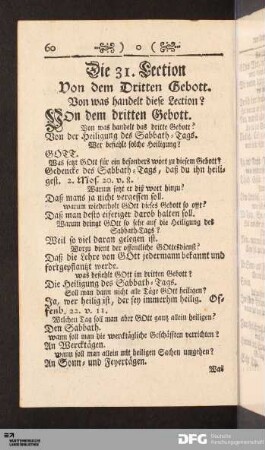 60 )o(
Die 31. Lection
Von dem Dritten Gebott.
Von was handelt diese Lection?
Von dem dritten Gebott.
Von was handelt das dritte Gebott?
Von der Heiligung des Sabbath-Tags.
Wer befihlt solche Heiligung?
GOTT.
Was setzt GOtt für ein besonders wort zu diesem Gebott?
Gedencke des Sabbath-Tags, daß du ihn heili-
gest. 2. Mos. 20. v. 8.
Warum setzt er diß wort hinzu?
Daß mans ja nicht vergessen soll.
Warum wiederholt GOtt dieses Gebott so oft?
Daß man desto eiferiger darob halten soll.
Warum dringt GOtt so sehr auf die Heiligung des
Sabbath-Tags?
Weil so viel daran gelegen ist.
Worzu dient der offentliche GOttesdienst?
Daß die Lehre von GOtt jedermann bekannt und
fortgepflantzt werde.
was befihlt GOtt im dritten Gebott?
Die Heiligung des Sabbath-Tags.
Soll man dann nicht alle Täge GOtt heiligen?
Ja, wer heilig ist, der sey immerhin heilig. Of-
fenb. 22. v. 11.
Welchen Tag soll man aber GOtt gantz allein heiligen?
Den Sabbath.
wann soll man die wercktägliche Geschäfften verrichten?
An Wercktägen.
wann soll man allein mit heiligen Sachen umgehen?
An Sonn- und Feyertägen.
Was
DFG Deutsche Forschungsgemeinschaft